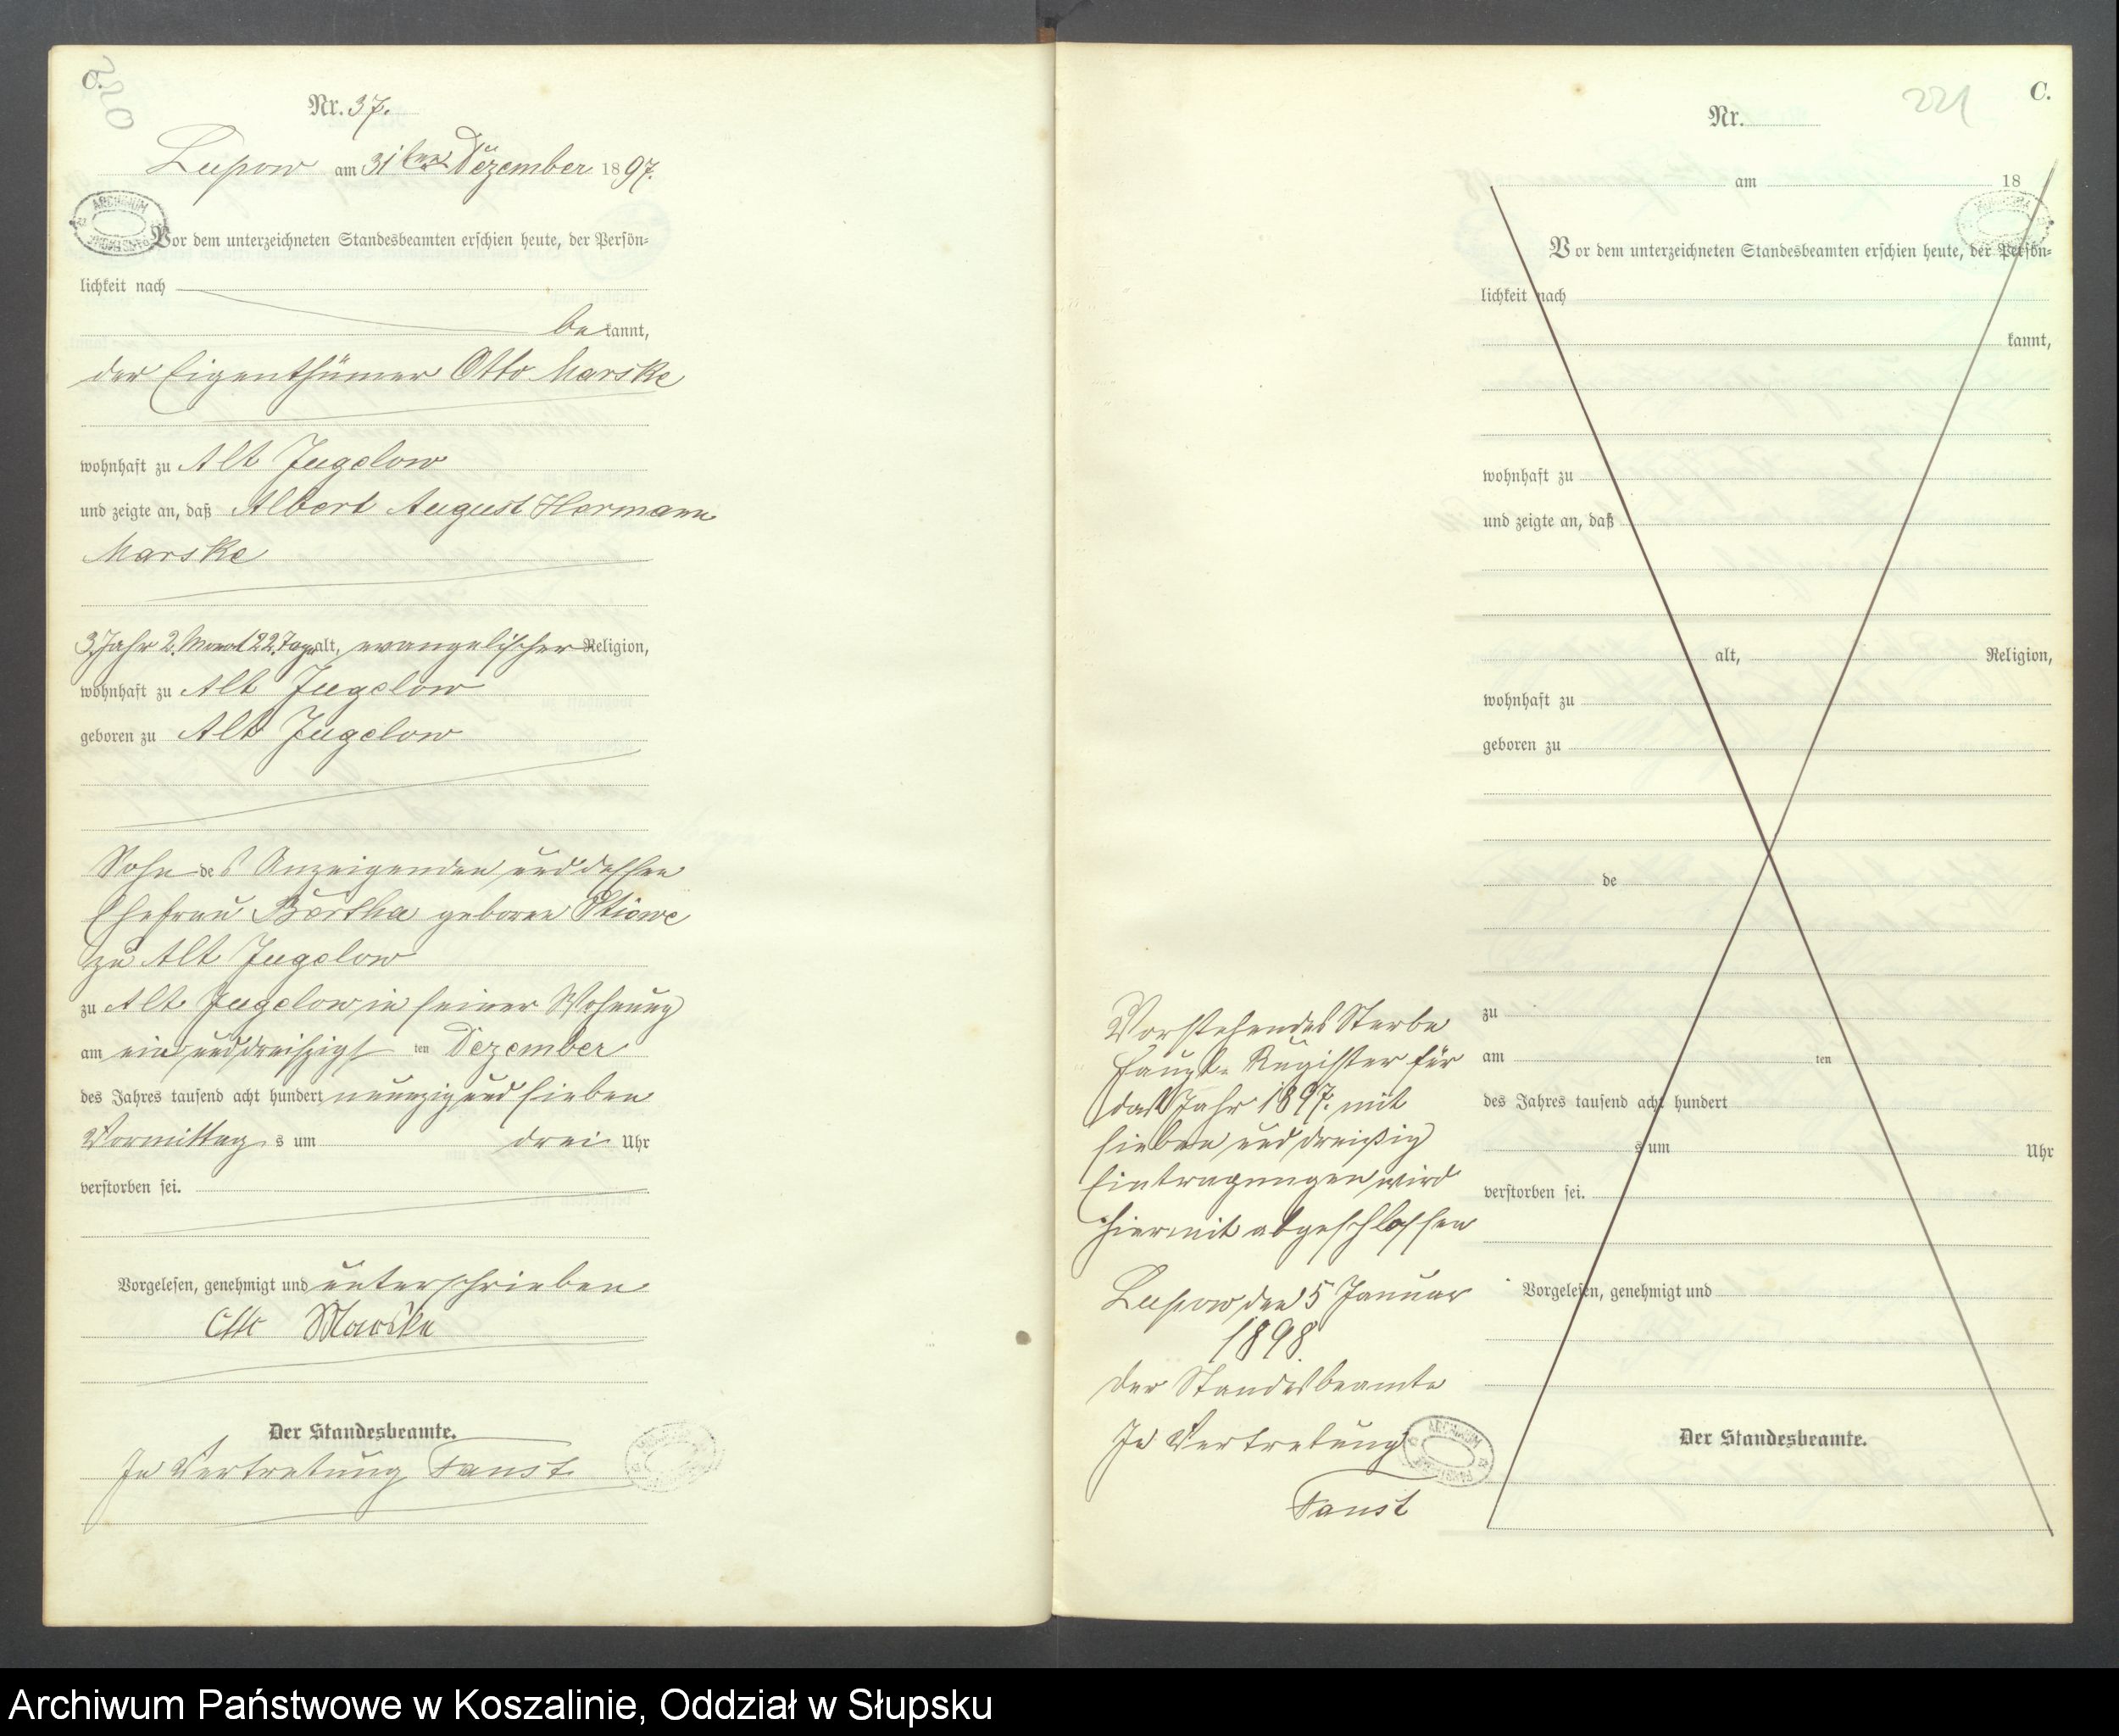 C.
220
Nr. 37.
Lupow am 31ten Dezember 1897.
Vor dem unterzeichneten Standesbeamten erschien heute, der Persön-
lichkeit nach
bekannt,
der Eigenthümer Otto Marske
wohnhaft zu Alt Jugelow
und zeigte an, daß Albert August Hermann
Marske
3 Jahr 2. Monat 22. Tage alt, evangelischer Religion,
wohnhaft zu Alt Jugelow
geboren zu Alt Jugelow
Sohn des Anzeigenden und dessen
Ehefrau Bertha geborne
zu Alt Jugelow
zu Alt Jugelow in seiner Wohnung
am ein und dreißigsten Dezember
des Jahres tausend acht hundert neunzig und sieben
Vormittags um drei Uhr
verstorben sei.
Vorgelesen, genehmigt und unterschrieben
Otto Marske
Der Standesbeamte.
In Vertretung Faust
C.
221
Nr.
am 18
Vor dem unterzeichneten Standesbeamten erschien heute, der Persön-
lichkeit nach
kannt,
wohnhaft zu
und zeigte an, daß
alt, Religion,
wohnhaft zu
geboren zu
de
zu
am ten
des Jahres tausend acht hundert
s um Uhr
verstorben sei.
Vorgelesen, genehmigt und
Der Standesbeamte.
Vorstehendes Sterbe
Haupt-Register für
das Jahr 1897. mit
sieben und dreißig
Eintragungen wird
hiermit abgeschlossen
Lupow den 5 Januar
1898.
Der Standesbeamte
In Vertretung
Faust
Archiwum Państwowe w Koszalinie, Oddział w Słupsku